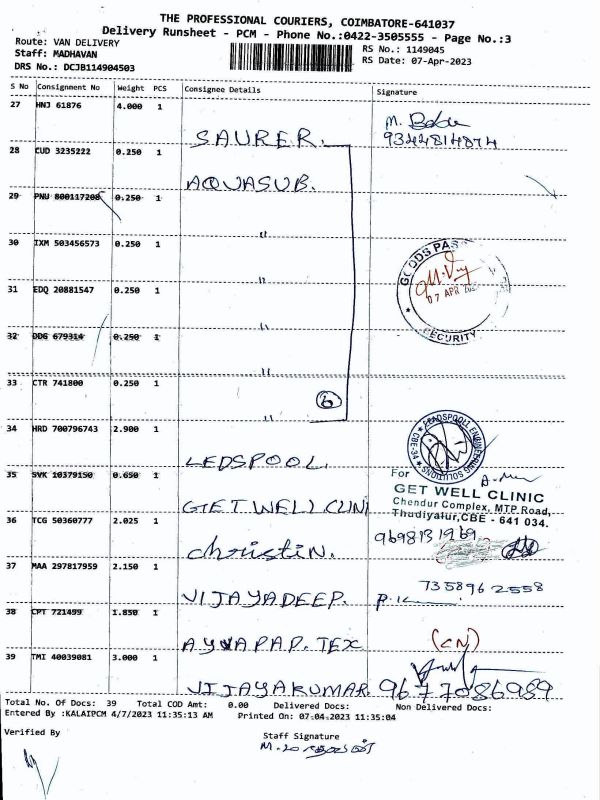 THE PROFESSIONAL COURIERS, COIMBATORE-641037
Delivery Runsheet - PCM - Phone No.:0422-3505555 - Page No.:3
Route: VAN DELIVERY
RS No.: 1149045
Staff: MADHAVAN
RS Date: 07-Apr-2023
DRS No.: DCJB114904503
S No Consignment No Weight PCS Consignee Details Signature
27 HNJ 61876 4.000 1 SAURER. M.
9344814874
28 CUD 3235222 0.250 1 AQUASUB.
29 PNU 800117208 0.250 1 "
30 IXM 503456573 0.250 1 "
GOODS PAS
07 APR
SECURITY
31 EDQ 20881547 0.250 1 "
32 DDG 679314 0.250 1 "
33 CTR 741800 0.250 1 "
6
34 HRD 700796743 2.900 1 LEDSPOOL.
LEADSPOOLL ENGINEERING SOLUTIONS
CBE-34
35 SVK 10379150 0.650 1 GET WELL CLINI
For
GET WELL CLINIC
Chendur Complex, MTP Road,
Thudiyalur,CBE - 641 034.
36 TCG 50360777 2.025 1 Christin.
9698131969
37 MAA 297817959 2.150 1 VIJAYADEEP.
735896 2558
38 CPT 721499 1.850 1 AYYAPAP. TEX
(CN)
39 TMI 40039081 3.000 1 VIJAYAKUMAR 9677086989
Total No. Of Docs: 39 Total COD Amt: 0.00 Delivered Docs: Non Delivered Docs:
Entered By :KALAIPCM 4/7/2023 11:35:13 AM Printed On: 07-04-2023 11:35:04
Verified By
Staff Signature